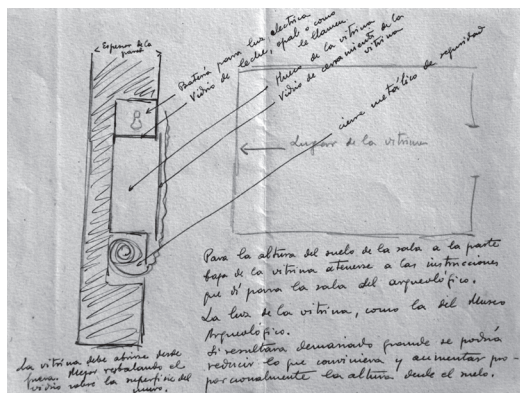 Espesor de la
pared
Batería para luz eléctrica
Vidrio de leche, opal o como
le llamen
Hueco de la vitrina
Vidrio de cerramiento de la
vitrina
cierre metálico de seguridad
Lugar de la vitrina
Para la altura del suelo de la sala a la parte
baja de la vitrina atenerse a las instrucciones
que dí para la sala del arqueológico.
La luz de la vitrina, como la del Museo
Arqueológico.
Si resultara demasiado grande se podría
reducir lo que conviniera y aumentar pro-
porcionalmente la altura desde el suelo.
La vitrina debe abrirse desde
fuera. Mejor resbalando el
vidrio sobre la superficie del
muro.